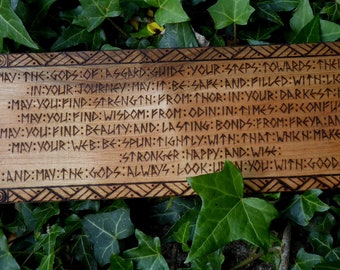 MAY:THE:GODS:OF:ASGARD:GUIDE:YOUR:STEPS:TOWARDS:THE
IN:YOUR:JOURNEY:MAY:IT:BE:SAFE:AND:FILLED:WITH
:MAY:YOU:FIND:STRENGTH:FROM:THOR:IN:YOUR:DARKEST:
:MAY:YOU:FIND:WISDOM:FROM:ODIN:IN:TIMES:OF:
MAY:YOU:FIND:BEAUTY:AND:LASTING:BONDS:FROM:FREYA:
MAY:YOUR:WEB:BE:SPUN:TIGHTLY:WITH:THAT:WHICH:
STRONGER:HAPPY:AND:WISE:
:AND:MAY:THE:GODS:ALWAYS:LOOK:UPON:YOU:WITH:GOOD